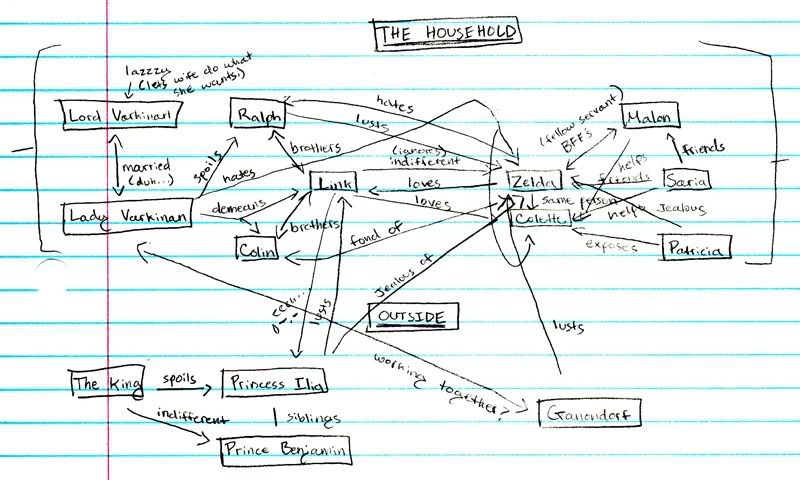 THE HOUSEHOLD
lazzzy
(lets wife do what
she wants.)
Lord Varkinan
Ralph
hates
lusts
(fellow servant)
BFF's
Malon
married
(duh...)
spoils
hates
brothers
(ignores)
indifferent
helps
friends
friends
Link
loves
loves
Zelda
same person
Colette
Saria
helps
jealous
Lady Varkinan
demeans
Colin
brothers
fond of
exposes
Patricia
lusts
Jealous of
OUTSIDE
lusts
The King
spoils
Princess Ilia
working together?
indifferent
siblings
Ganondorf
Prince Benjamin